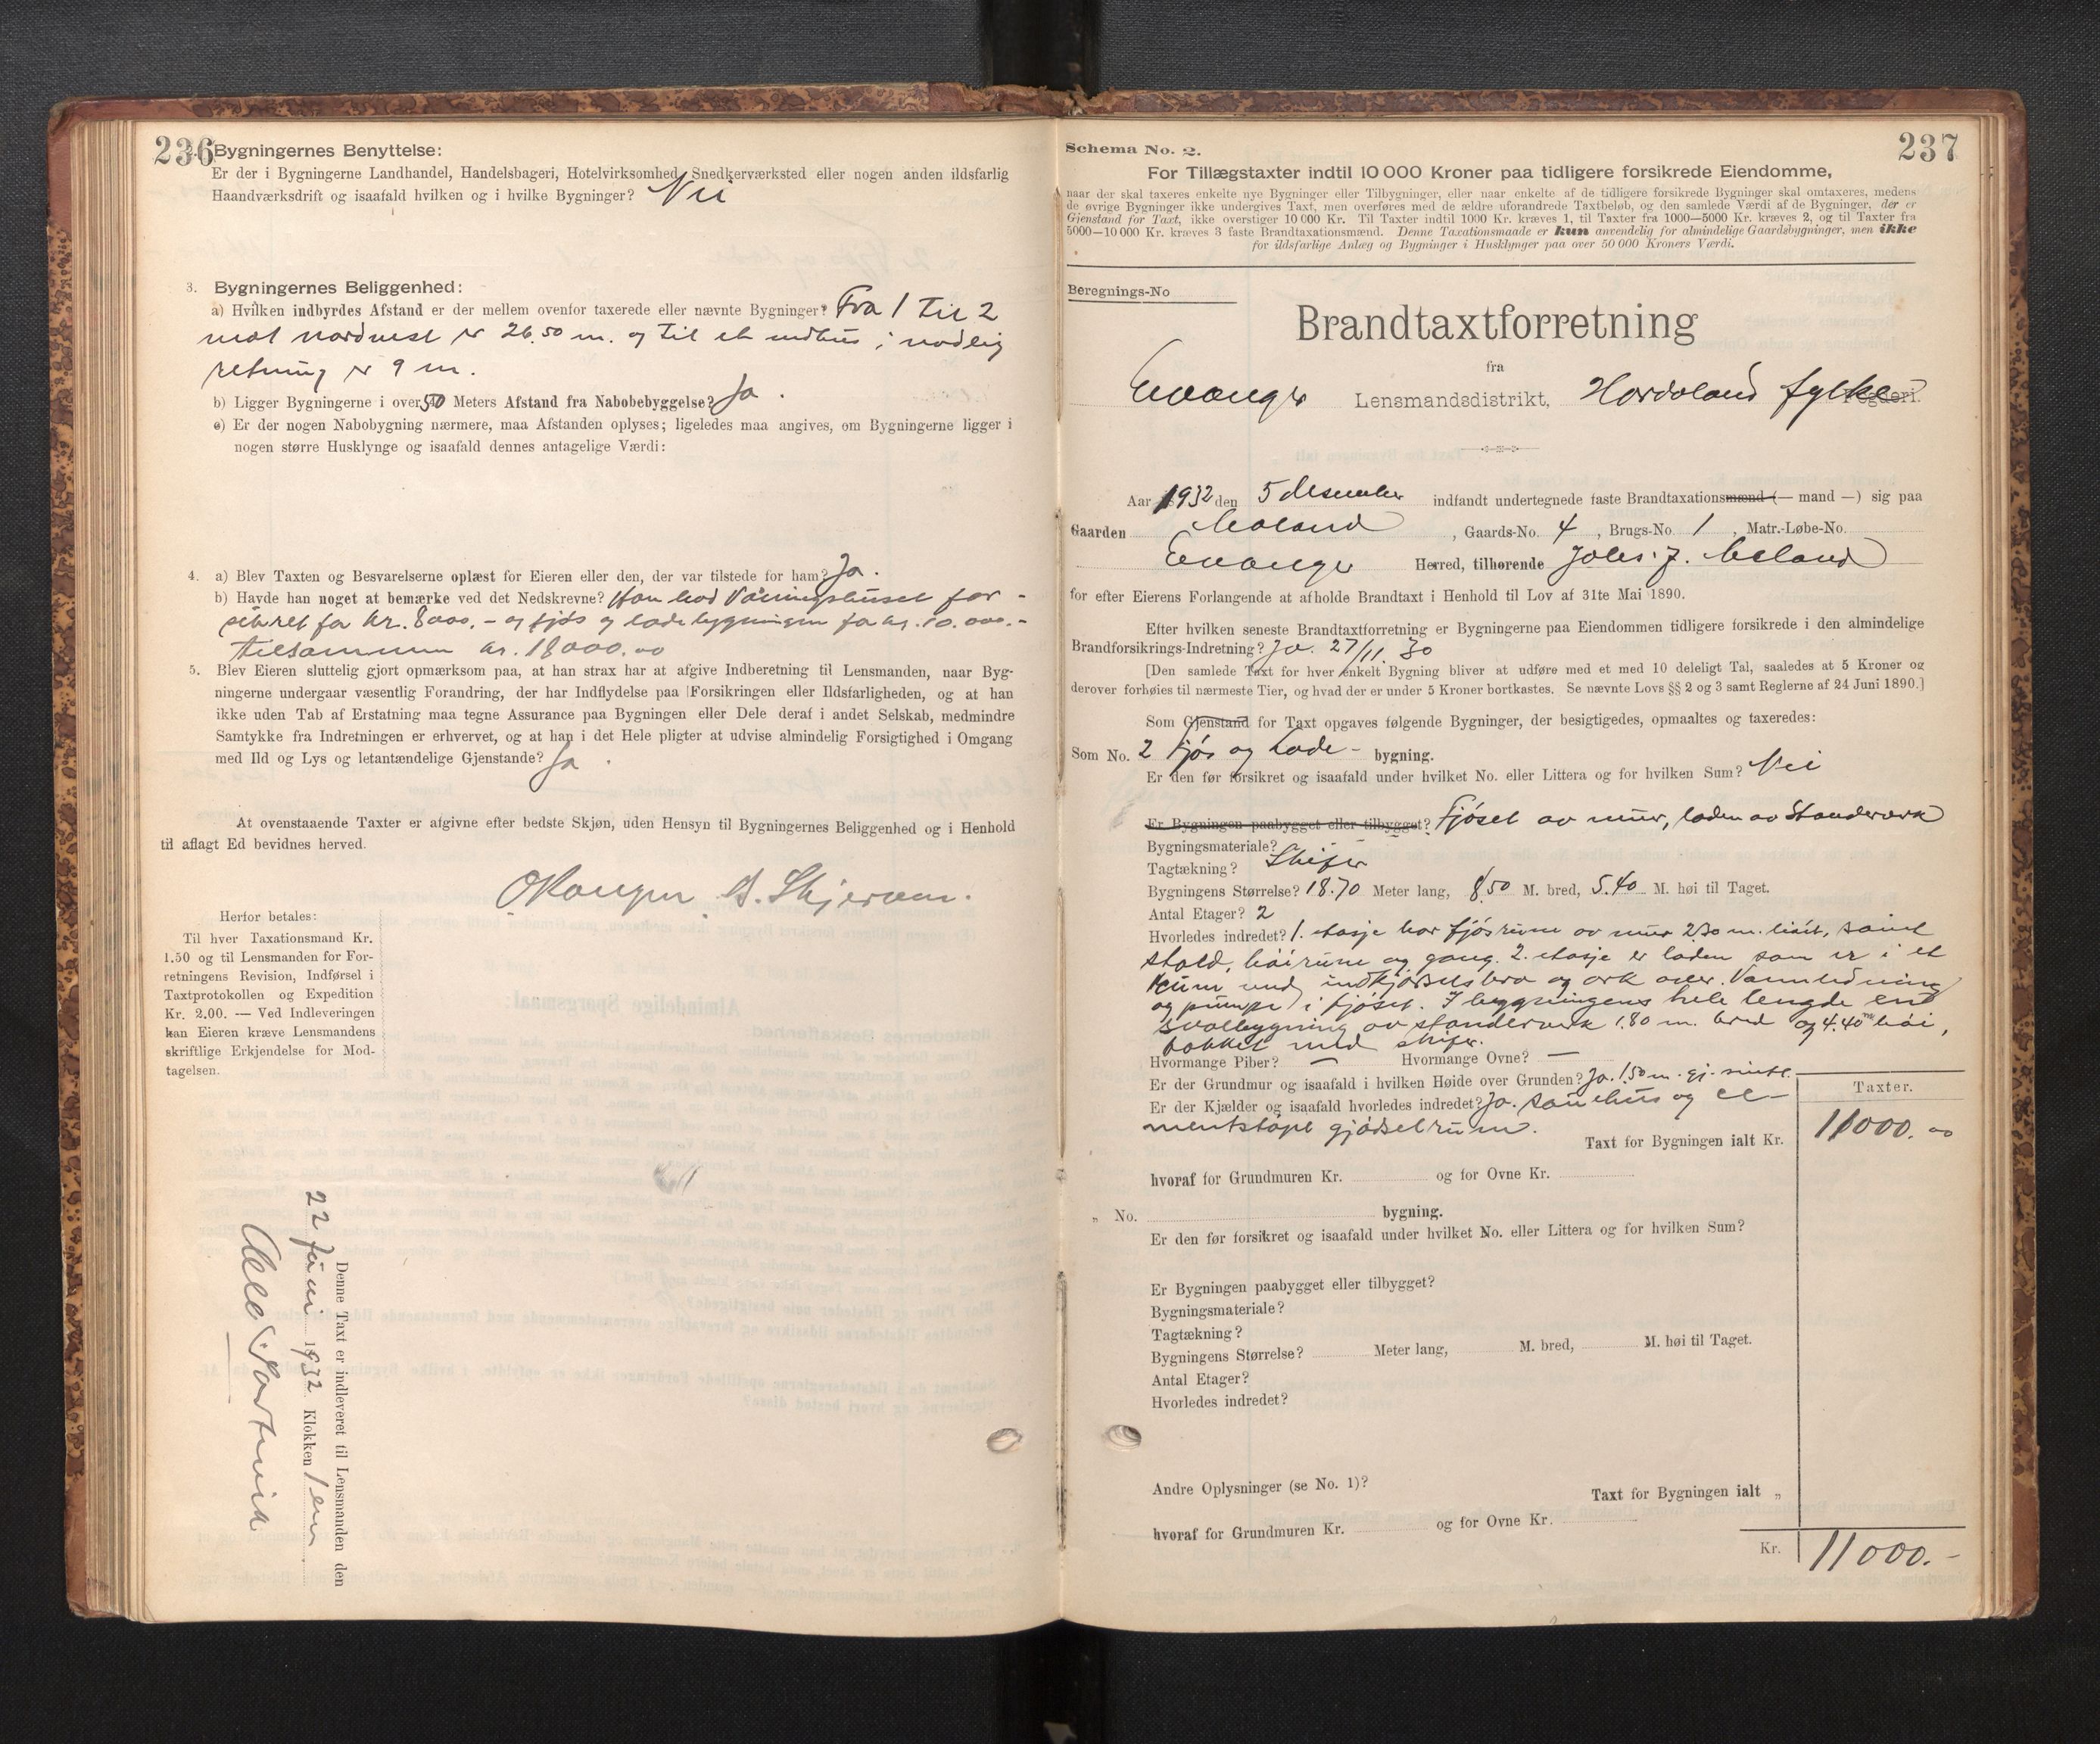 236
Bygningernes Benyttelse:
Er der i Bygningerne Landhandel, Handelsbageri, Hotelvirksomhed, Snedkerværksted eller nogen anden ildsfarlig
Haandværksdrift og isaafald hvilken og i hvilke Bygninger? Nei
3. Bygningernes Beliggenhed:
a) Hvilken indbyrdes Afstand er der mellem ovenfor taxerede eller nævnte Bygninger? Fra 1 til 2
mot nordvest er 26.50 m. og til et uthus i nordlig
retning er 9 m.
b) Ligger Bygningerne i over 50 Meters Afstand fra Nabobebyggelse? Ja.
c) Er der nogen Nabobygning nærmere, maa Afstanden oplyses; ligeledes maa angives, om Bygningerne ligger i
nogen større Husklynge og isaafald dennes antagelige Værdi:
4. a) Blev Taxten og Besvarelserne oplæst for Eieren eller den, der var tilstede for ham? Ja.
b) Havde han noget at bemærke ved det Nedskrevne? Han hod Våningshuset for-
sikret for kr. 8000.- og fjøs og ladebygningen for kr. 10.000.-
tilsammen kr. 18000.00
5. Blev Eieren sluttelig gjort opmærksom paa, at han strax har at afgive Indberetning til Lensmanden, naar Byg-
ningerne undergaar væsentlig Forandring, der har Indflydelse paa Forsikringen eller Ildsfarligheden, og at han
ikke uden Tab af Erstatning maa tegne Assurance paa Bygningen eller Dele deraf i andet Selskab, medmindre
Samtykke fra Indretningen er erhvervet, og at han i det Hele pligter at udvise almindelig Forsigtighed i Omgang
med Ild og Lys og letantændelige Gjenstande? Ja.
At ovenstaaende Taxter er afgivne efter bedste Skjøn, uden Hensyn til Bygningernes Beliggenhed og i Henhold
til aflagt Ed bevidnes herved.
Herfor betales:
Til hver Taxationsmand Kr.
1.50 og til Lensmanden for For-
retningens Revision, Indførsel i
Taxtprotokollen og Expedition
Kr. 2.00. — Ved Indleveringen
kan Eieren kræve Lensmandens
skriftlige Erkjendelse for Mod-
tagelsen.
Denne Taxt er indleveret til Lensmanden den
22 juni 1932 Klokken 1 em
237
Schema No. 2.
For Tillægstaxter indtil 10 000 Kroner paa tidligere forsikrede Eiendomme,
naar der skal taxeres enkelte nye Bygninger eller Tilbygninger, eller naar enkelte af de tidligere forsikrede Bygninger skal omtaxeres, medens
de øvrige Bygninger ikke undergives Taxt, men overføres med de ældre uforandrede Taxtbeløb, og den samlede Værdi af de Bygninger, der er
Gjenstand for Taxt, ikke overstiger 10 000 Kr. Til Taxter indtil 1000 Kr. kræves 1, til Taxter fra 1000—5000 Kr. kræves 2, og til Taxter fra
5000—10 000 Kr. kræves 3 faste Brandtaxationsmænd. Denne Taxationsmaade er kun anvendelig for almindelige Gaardsbygninger, men ikke
for ildsfarlige Anlæg og Bygninger i Husklynger paa over 50 000 Kroners Værdi.
Beregnings-No
Brandtaxtforretning
fra
Evanger Lensmandsdistrikt, Hordaland fylke Fogderi.
Aar 1932 den 5 desember indfandt undertegnede faste Brandtaxationsmænd (— mand —) sig paa
Gaarden , Gaards-No. 4 , Brugs-No. 1 , Matr.-Løbe-No.
Evanger Herred, tilhørende
for efter Eierens Forlangende at afholde Brandtaxt i Henhold til Lov af 31te Mai 1890.
Efter hvilken seneste Brandtaxtforretning er Bygningerne paa Eiendommen tidligere forsikrede i den almindelige
Brandforsikrings-Indretning? Ja. 27/11. 30
[Den samlede Taxt for hver enkelt Bygning bliver at udføre med et med 10 deleligt Tal, saaledes at 5 Kroner og
derover forhøies til nærmeste Tier, og hvad der er under 5 Kroner bortkastes. Se nævnte Lovs §§ 2 og 3 samt Reglerne af 24 Juni 1890.]
Som Gjenstand for Taxt opgaves følgende Bygninger, der besigtigedes, opmaaltes og taxeredes:
Som No. 2 Fjøs og Lade- bygning.
Er den før forsikret og isaafald under hvilket No. eller Littera og for hvilken Sum? Nei
Er Bygningen paabygget eller tilbygget? Fjøset av mur, laden av Standerverk
Bygningsmateriale?
Tagtækning? Skifer
Bygningens Størrelse? 18.70 Meter lang, 8.50 M. bred, 5.40 M. høi til Taget.
Antal Etager? 2
Hvorledes indredet? 1. etasje har fjøsrum av mur 2.30 m. høit, samt
stald, høirum og gang. 2. etasje er laden som er i et
rum med indkjørselsbro og ark over. Vannledning
og pumpe i fjøset. I bygningens hele lengde en
svalbygning av standerverk 1.80 m. bred og 4.40 m høi,
takket med skifer.
Hvormange Piber? — Hvormange Ovne? —
Er der Grundmur og isaafald i hvilken Høide over Grunden? Ja. 1.50 m. gj. snitt.
Er der Kjælder og isaafald hvorledes indredet? Ja. sauehus og ce-
mentstøpt gjødselrum.
Taxter.
Taxt for Bygningen ialt Kr. 11000.00
hvoraf for Grundmuren Kr. og for Ovne Kr.
„ No. bygning.
Er den før forsikret og isaafald under hvilket No. eller Littera og for hvilken Sum?
Er Bygningen paabygget eller tilbygget?
Bygningsmateriale?
Tagtækning?
Bygningens Størrelse? Meter lang, M. bred, M. høi til Taget.
Antal Etager?
Hvorledes indredet?
Andre Oplysninger (se No. 1)?
Taxt for Bygningen ialt „
hvoraf for Grundmuren Kr. og for Ovne Kr.
Kr. 11000.-